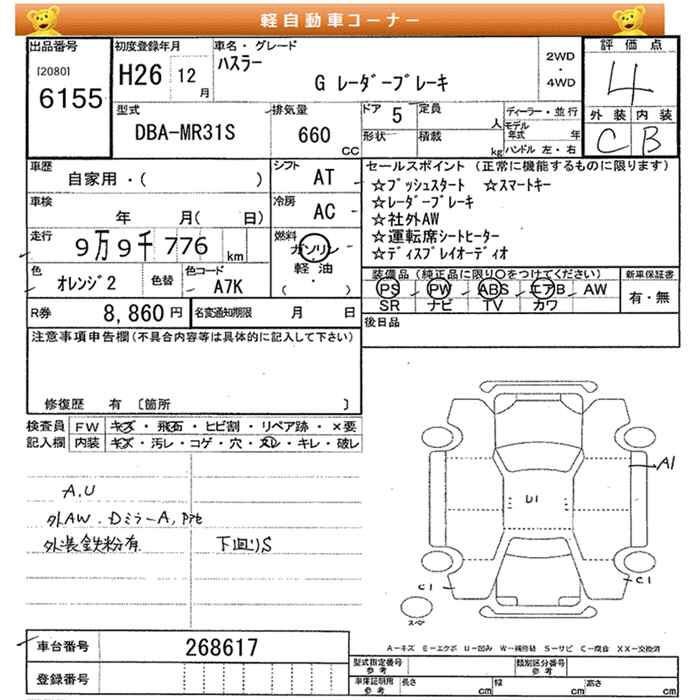 軽自動車コーナー
出品番号 初度登録年月 車名・グレード 評価点
[2080] 6155
H26 12月
ハスラー
G レーダーブレーキ
2WD・4WD
4
外装 内装
C B
型式 排気量 ドア 定員 ディーラー・並行
DBA-MR31S 660 CC 5 人
モデル年式 年
形状 積載 kg ハンドル 左・右
車歴 シフト セールスポイント(正常に機能するものに限ります)
自家用・( ) AT
☆プッシュスタート ☆スマートキー
☆レーダーブレーキ
☆社外AW
☆運転席シートヒーター
☆ディスプレイオーディオ
車検 冷房
年 月( 日) AC
走行 燃料
9万9千776 km ガソリン・軽油・( )
色 色替 色コード
オレンジ2 A7K
装備品(純正品に限り○をつけてください) 新車保証書
PS PW ABS エアB AW 有・無
SR ナビ TV カワ
R券 8,860円 名変通知期限 月 日
後日品
注意事項申告欄(不具合内容等は具体的に記入して下さい)
修復歴 有 〔箇所 〕
検査員 FW キズ・飛石・ヒビ割・リペア跡・×要
記入欄 内装 キズ・汚レ・コゲ・穴・スレ・キレ・破レ
A.U
外AW.DミラーA,
外装鉄粉有 下回りS
A1
U1
C1 C1
スペア
A-キズ E-エクボ U-凹み W-補修跡 S-サビ C-腐食 XX-交換済
車台番号 268617
登録番号
型式指定番号 参考 類別区分番号 参考
車庫証明用 参考 長さ cm 幅 cm 高さ cm